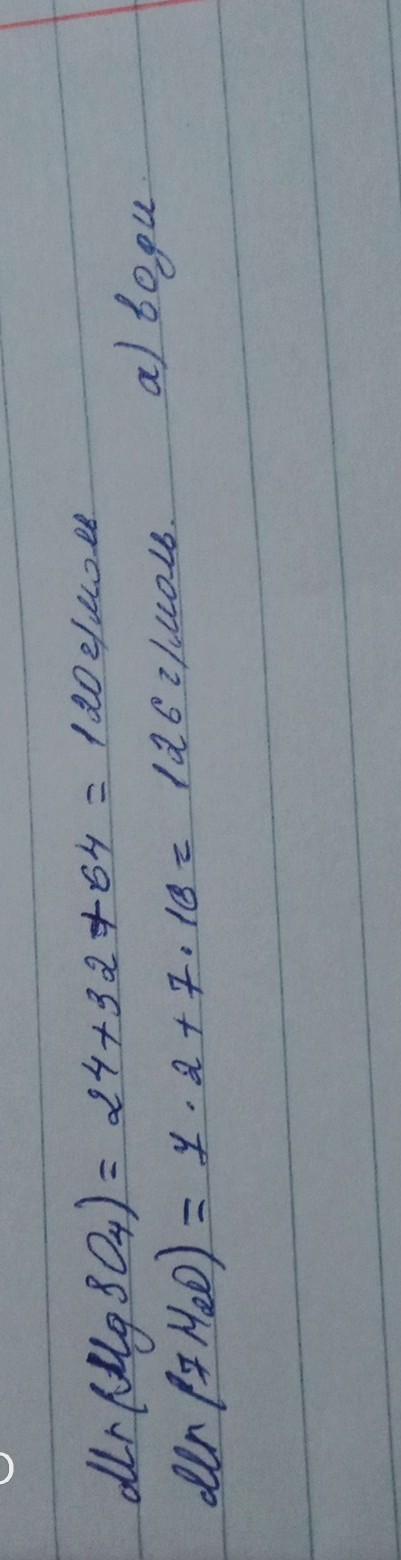 Mr(MgSO4) = 24+32+64 = 120 г/моль
Mr(7H2O) = 7·2+7·16= 126 г/моль. а) води.